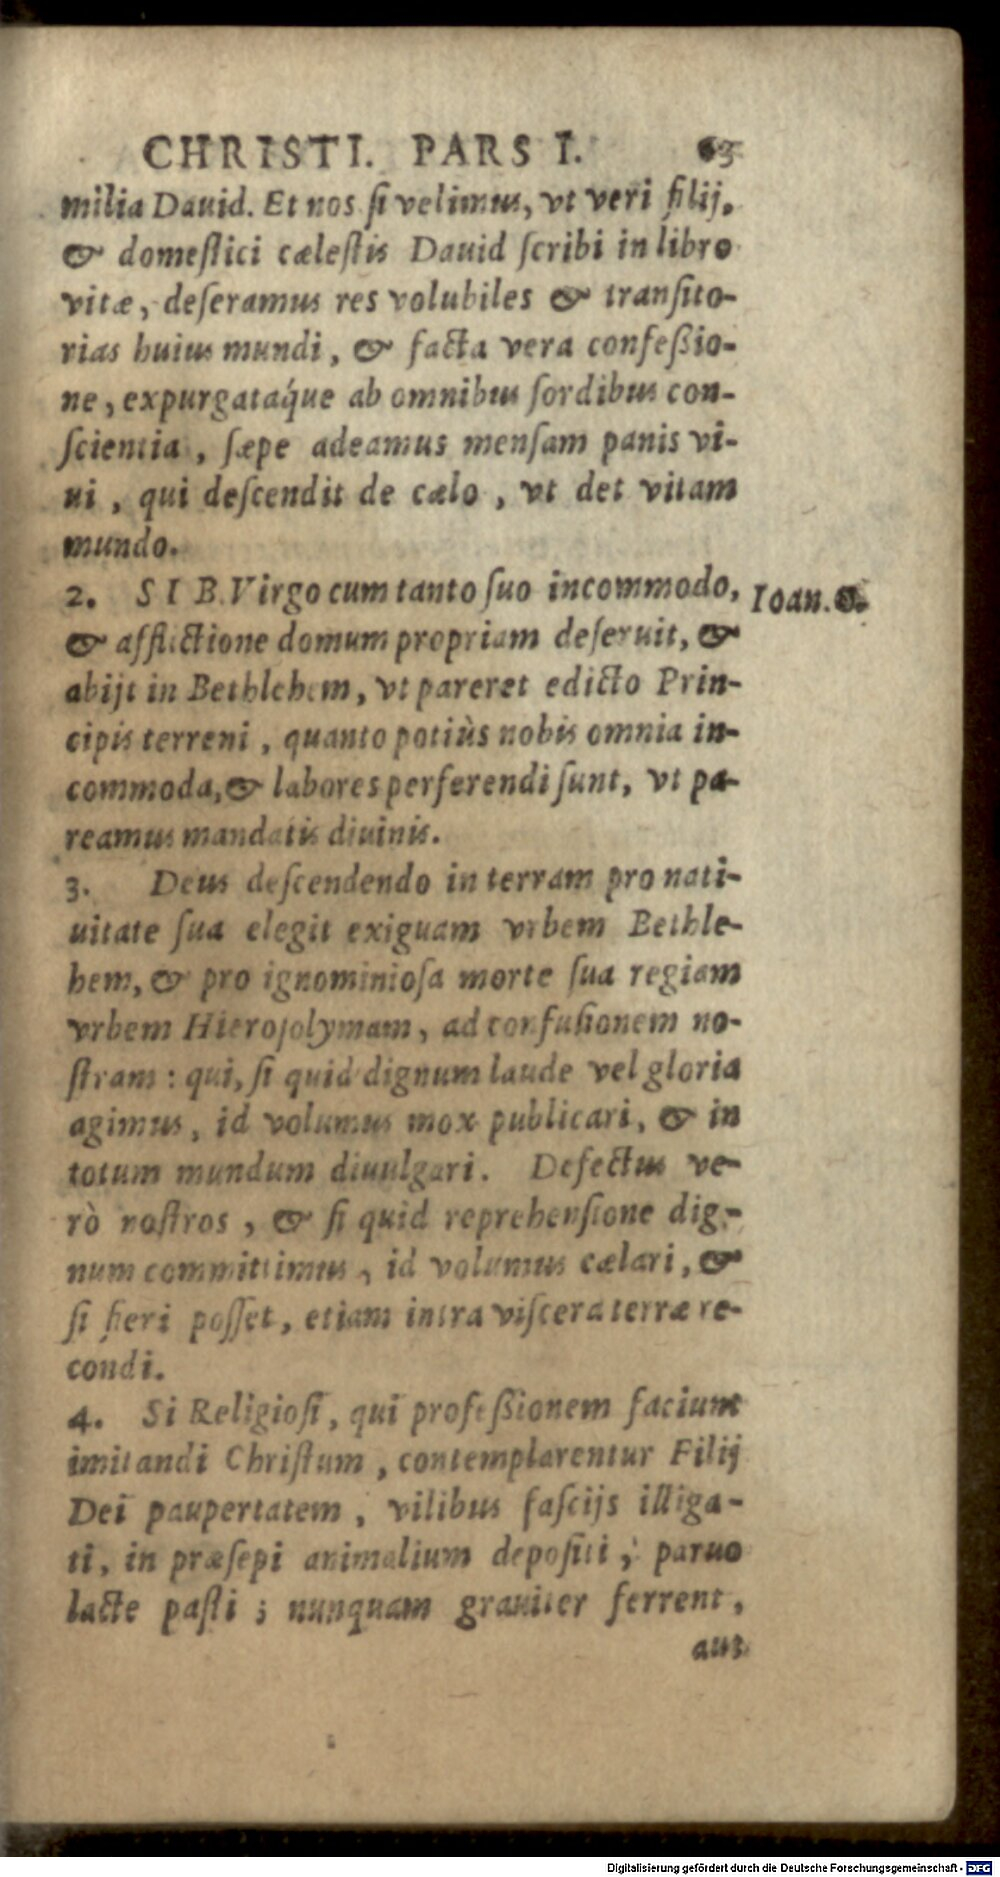 CHRISTI. PARS I. 63
milia Dauid. Et nos si velimus, vt veri filij,
& domestici cælestis Dauid scribi in libro
vitæ, deseramus res volubiles & transito-
rias huius mundi, & facta vera confeßio-
ne, expurgatáque ab omnibus sordibus con-
scientia, sæpe adeamus mensam panis vi-
ui, qui descendit de cælo, vt det vitam
mundo.
2. SI B. Virgo cum tanto suo incommodo,
Ioan.
& afflictione domum propriam deseruit, &
abijt in Bethlehem, vt pareret edicto Prin-
cipis terreni, quanto potiùs nobis omnia in-
commoda, & labores perferendi sunt, vt pa-
reamus mandatis diuinis.
3. Deus descendendo in terram pro nati-
uitate sua elegit exiguam vrbem Bethle-
hem, & pro ignominiosa morte sua regiam
vrbem Hierosolymam, ad confusionem no-
stram: qui, si quid dignum laude vel gloria
agimus, id volumus mox publicari, & in
totum mundum diuulgari. Defectus ve-
rò nostros, & si quid reprehensione dig-
num committimus, id volumus cælari, &
si fieri posset, etiam intra viscera terræ re-
condi.
4. Si Religiosi, qui profeßionem faciunt
imitandi Christum, contemplarentur Filij
Dei paupertatem, vilibus fascijs illiga-
ti, in præsepi animalium depositi, paruo
lacte pasti; nunquam grauiter ferrent,
aut
Digitalisierung gefördert durch die Deutsche Forschungsgemeinschaft - DFG